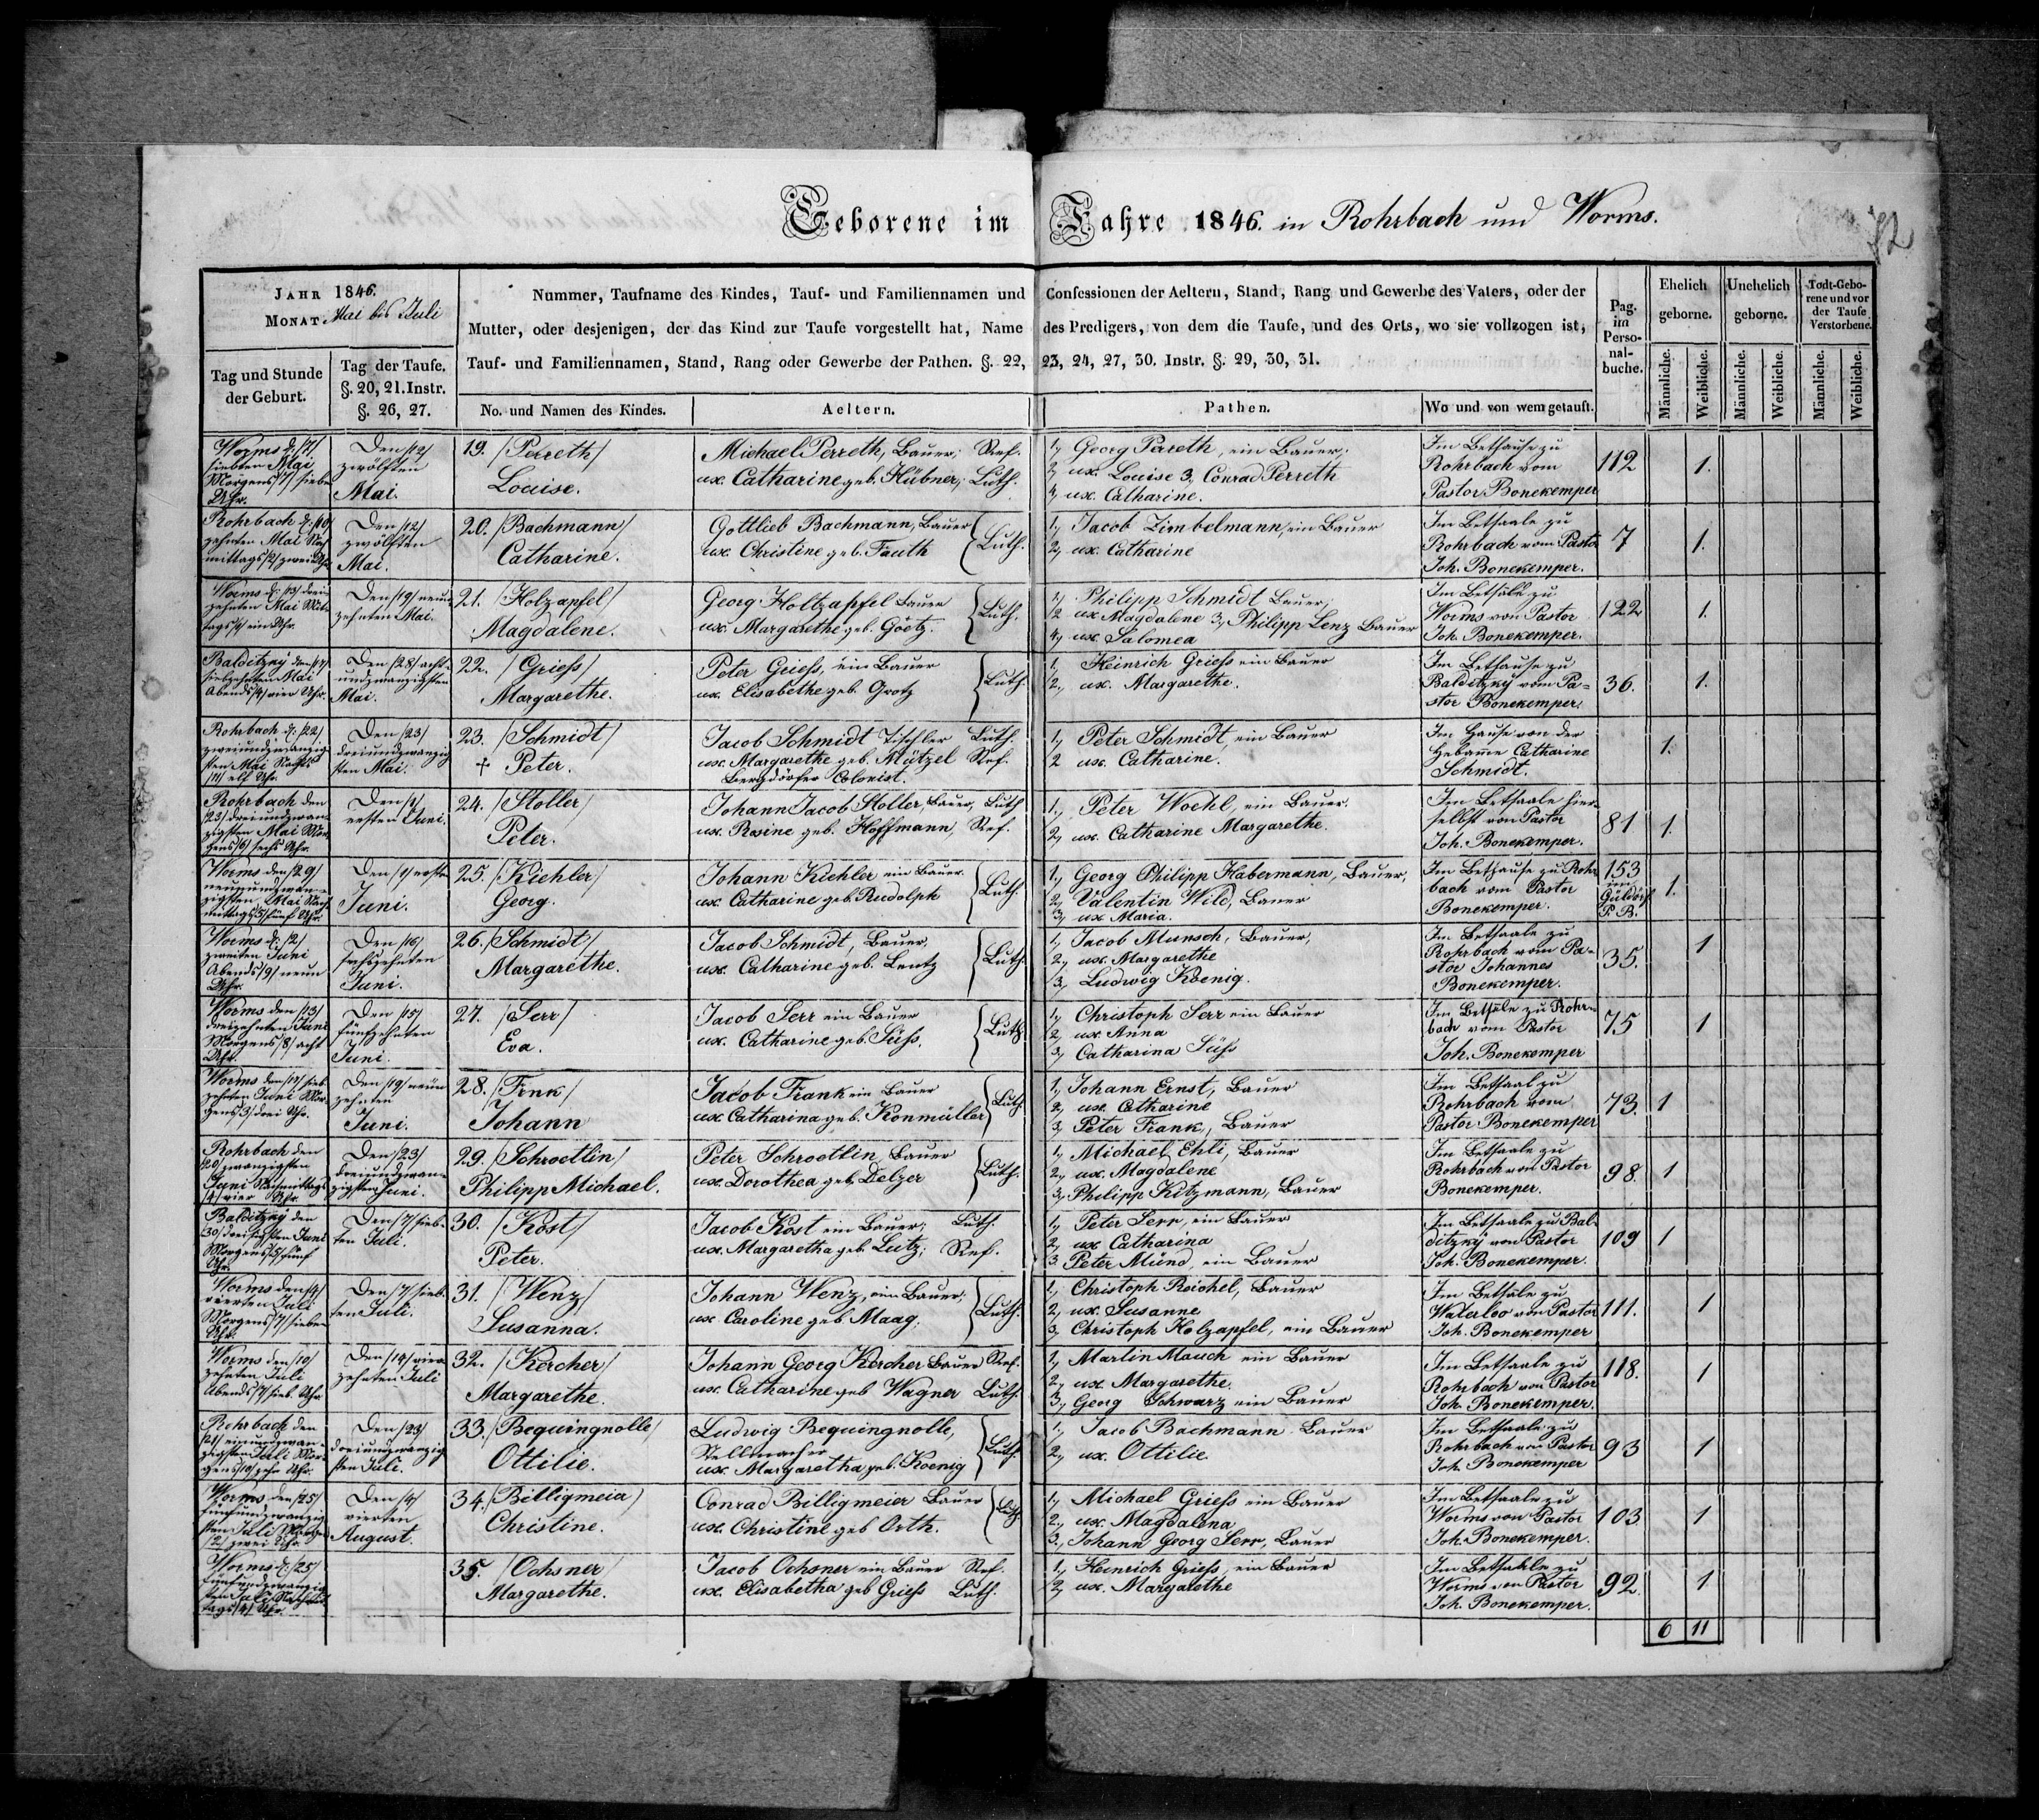 Geborene im Jahre 1846. in Rohrbach und Worms.
82
JAHR 1846.
MONAT Mai bis Juli
Tag und Stunde
der Geburt.
Tag der Taufe.
§. 20, 21. Instr.
§. 26, 27.
Nummer, Taufname des Kindes, Tauf- und Familiennamen und Confessionen der Aeltern, Stand, Rang und Gewerbe des Vaters, oder der
Mutter, oder desjenigen, der das Kind zur Taufe vorgestellt hat, Name des Predigers, von dem die Taufe, und des Orts, wo sie vollzogen ist,
Tauf- und Familiennamen, Stand, Rang oder Gewerbe der Pathen. §. 22, 23, 24, 27, 30. Instr. §. 29, 30, 31.
No. und Namen des Kindes.
Aeltern.
Pathen.
Wo und von wem getauft.
Pag.
im
Perso-
nal-
buche.
Ehelich
geborne.
Unehelich
geborne.
Todt-Gebo-
rene und vor
der Taufe
Verstorbene.
Männliche.
Weibliche.
Männliche.
Weibliche.
Männliche.
Weibliche.
Worms d: /7/
siebten Mai
Morgens /7/ sieben
Uhr.
Den /12/
zwölften
Mai.
19. /Perreth/
Louise.
Michael Perreth, Bauer; Ref.
ux. Catharine geb. Hübner; Luth.
1, Georg Pareth, ein Bauer;
2, ux. Louise 3, Conrad Perreth
4, ux. Catharine.
Im Bethause zu
Rohrbach vom
Pastor Bonekemper
112
1.
Rohrbach d: /10/
zehnten Mai Nach
mittags /2/ zwei Uhr.
Den /12/
zwölften
Mai.
20. /Bachmann/
Catharine.
Gottlieb Bachmann, Bauer
ux. Christine geb. Fauth
Luth.
1, Jacob Zimbelmann, ein Bauer
2, ux. Catharine
Im Betsaale zu
Rohrbach vom Pastor
Joh. Bonekemper.
7
1.
Worms d: /13/ drei
zehnten Mai Mit-
tags /1/ ein Uhr.
Den /19/ neun
zehnten Mai.
21. /Holzapfel/
Magdalene.
Georg Holtzapfel Bauer
ux. Margarethe geb. Goetz.
Luth.
1, Philipp Schmidt Bauer;
2 ux Magdalene 3, Philipp Lenz Bauer
4, ux. Salomea
Im Betsäle zu
Worms von Pastor
Joh. Bonekemper.
122
1.
Balditzky den /17/
siebzehnten Mai
Abends /4/ vier Uhr.
Den /28/ acht-
undzwanzigsten
Mai.
22. /Griess/
Margarethe.
Peter Griess, ein Bauer
ux. Elisabethe geb. Grotz
Luth.
1, Heinrich Griess ein Bauer
2, ux. Margarethe.
Im Bethause zu
Balditzky vom Pa-
stor Bonekemper.
36.
1.
Rohrbach d: /22/
zweiundzwanzig
sten Mai Nachts
/11/ elf Uhr
Den /23/
dreiundzwanzig
sten Mai.
23. /Schmidt/
† Peter.
Jacob Schmidt Tischler Luth.
ux. Margarethe geb. Mützel Ref.
Bergdörfer Colonist.
1, Peter Schmidt, ein Bauer
2 ux. Catharine.
Im Hause von der
Hebamme Catharine
Schmidt.
1.
Rohrbach den
/23/ dreiundzwan-
zigsten Mai Mor-
gens /6/ sechs Uhr.
Den /1/
ersten Juni.
24. /Stoller/
Peter.
Johann Jacob Stoller, Bauer, Luth
ux. Rosine geb. Hoffmann, Ref.
1., Peter Woehl, ein Bauer.
2, ux. Catharine Margarethe.
Im Betsaale hier-
selbst von Pastor
Joh. Bonekemper.
81
1.
Worms den /29/
neunundzwan-
zigsten Mai Nach
mittags /5/ fünf Uhr.
Den /1/ ersten
Juni.
25. /Kiehler/
Georg.
Johann Kiehler ein Bauer.
ux. Catharine geb. Rudolph
Luth.
1, Georg Philipp Habermann, Bauer,
2, Valentin Wild, Bauer
3, ux Maria.
Im Bethause zu Rohr
bach vom Pastor
Bonekemper.
153
im
Güldorf
P. B.
1.
Worms d: /2/
zweiten Juni
Abends /9/ neun
Uhr.
Den /16/
sechszehnten
Juni.
26. /Schmidt/
Margarethe.
Jacob Schmidt, Bauer,
ux. Catharine geb. Lentz
Luth.
1, Jacob Munsch, Bauer,
2, ux. Margarethe
3, Ludwig Koenig.
Im Betsaale zu
Rohrbach vom Pa-
stor Johannes
Bonekemper.
35.
1
Worms den /13/
dreizehnten Juni
Morgens /8/ acht
Uhr.
Den /15/
fünfzehnten
Juni.
27. /Serr/
Eva.
Jacob Serr ein Bauer
ux. Catharine geb. Süss.
Luth
1, Christoph Serr ein Bauer
2, ux. Anna
3, Catharina Süss
Im Betsäle zu Rohr-
bach vom Pastor
Joh. Bonekemper
75
1
Worms den /17/ sieb
zehnten Juni Mor-
gens /3/ drei Uhr.
Den /19/ neun
zehnten
Juni.
28. /Frnk/
Johann
Jacob Frank ein Bauer
ux. Catharina geb. Konmüller
Luth
1, Johann Ernst, Bauer
2, ux. Catharine
3, Peter Frank, Bauer
Im Betsaal zu
Rohrbach vom
Pastor Bonekemper
73.
1
Rohrbach den
/20/ zwanzigsten
Juni Nachmittags
/4/ vier Uhr.
Den /23/
dreiundzwan-
zigsten Juni.
29. /Schroetlin/
Philipp Michael.
Peter Schroetlin, Bauer
ux. Dorothea geb. Delzer
Luth.
1, Michael Ehli, Bauer
2, ux. Magdalene
3, Philipp Kitzmann, Bauer
Im Betsaale zu
Rohrbach von Pastor
Bonekemper.
98.
1
Balditzky den
/30/ dreissigsten Juni
Morgens /5/ fünf
Uhr.
Den /7/ sieb-
ten Juli.
30. /Kost/
Peter.
Jacob Kost ein Bauer; Luth.
ux. Margaretha geb. Lutz; Ref.
1, Peter Serr, ein Bauer
2, ux Catharina
3. Peter Münd, ein Bauer
Im Betsaale zu Bal-
ditzky von Pastor
Joh. Bonekemper.
109
1
Worms den /4/
vierten Juli
Morgens /7/ sieben
Uhr.
Den /7/ sieb-
ten Juli.
31. /Wenz/
Susanna.
Johann Wenz, ein Bauer;
ux. Caroline geb Maag.
Luth.
1, Christoph Reichel, Bauer
2, ux. Susanne
3, Christoph Holzapfel, ein Bauer
Im Betsäle zu
Waterloo von Pastor
Joh. Bonekemper
111.
1
Worms den /10/
zehnten Juli
Abends /7/ sieb. Uhr
Den /14/ vier
zehnten Juli
32. /Kercher/
Margarethe.
Johann Georg Kercher Bauer Ref.
ux. Catharine geb Wagner Luth.
1, Martin Mauch ein Bauer
2, ux. Margarethe.
3, Georg Schwarz ein Bauer
Im Betsaale zu
Rohrbach von Pastor
Joh. Bonekemper.
118.
1
Rohrbach den
/21/ einundzwan-
zigsten Juli Mor-
gens /10/ zehn Uhr.
Den /23/
dreiundzwanzig
sten Juli.
33. /Beguingnolle/
Ottilie.
Ludwig Beguingnolle,
Stellmacher
ux. Margaretha geb. Koenig
Luth.
1, Jacob Bachmann Bauer
2, ux. Ottilie
Im Betsaale zu
Rohrbach von Pastor
Joh. Bonekemper
93
1
Worms den /25/
fünfundzwanzig
sten Juli Morgens
/2/ zwei Uhr.
Den /4/
vierten
August.
34. /Billigmeia/
Christine.
Conrad Billigmeier Bauer
ux. Christine geb Orth.
Luth
1, Michael Griess ein Bauer
2, ux. Magdalena
3, Johann Georg Serr, Bauer
Im Betsaale zu
Worms von Pastor
Joh. Bonekemper.
103
1
Worms d. /25/
fünfundzwanzig
sten Juli Nachmit
tags /4/ Uhr.
35. /Ochsner/
Margarethe.
Jacob Ochsner ein Bauer Ref.
ux. Elisabetha geb Griess Luth.
1, Heinrich Griess, ein Bauer
2, ux. Margarethe
Im Betsaale zu
Worms von Pastor
Joh. Bonekemper.
92.
1
6 11